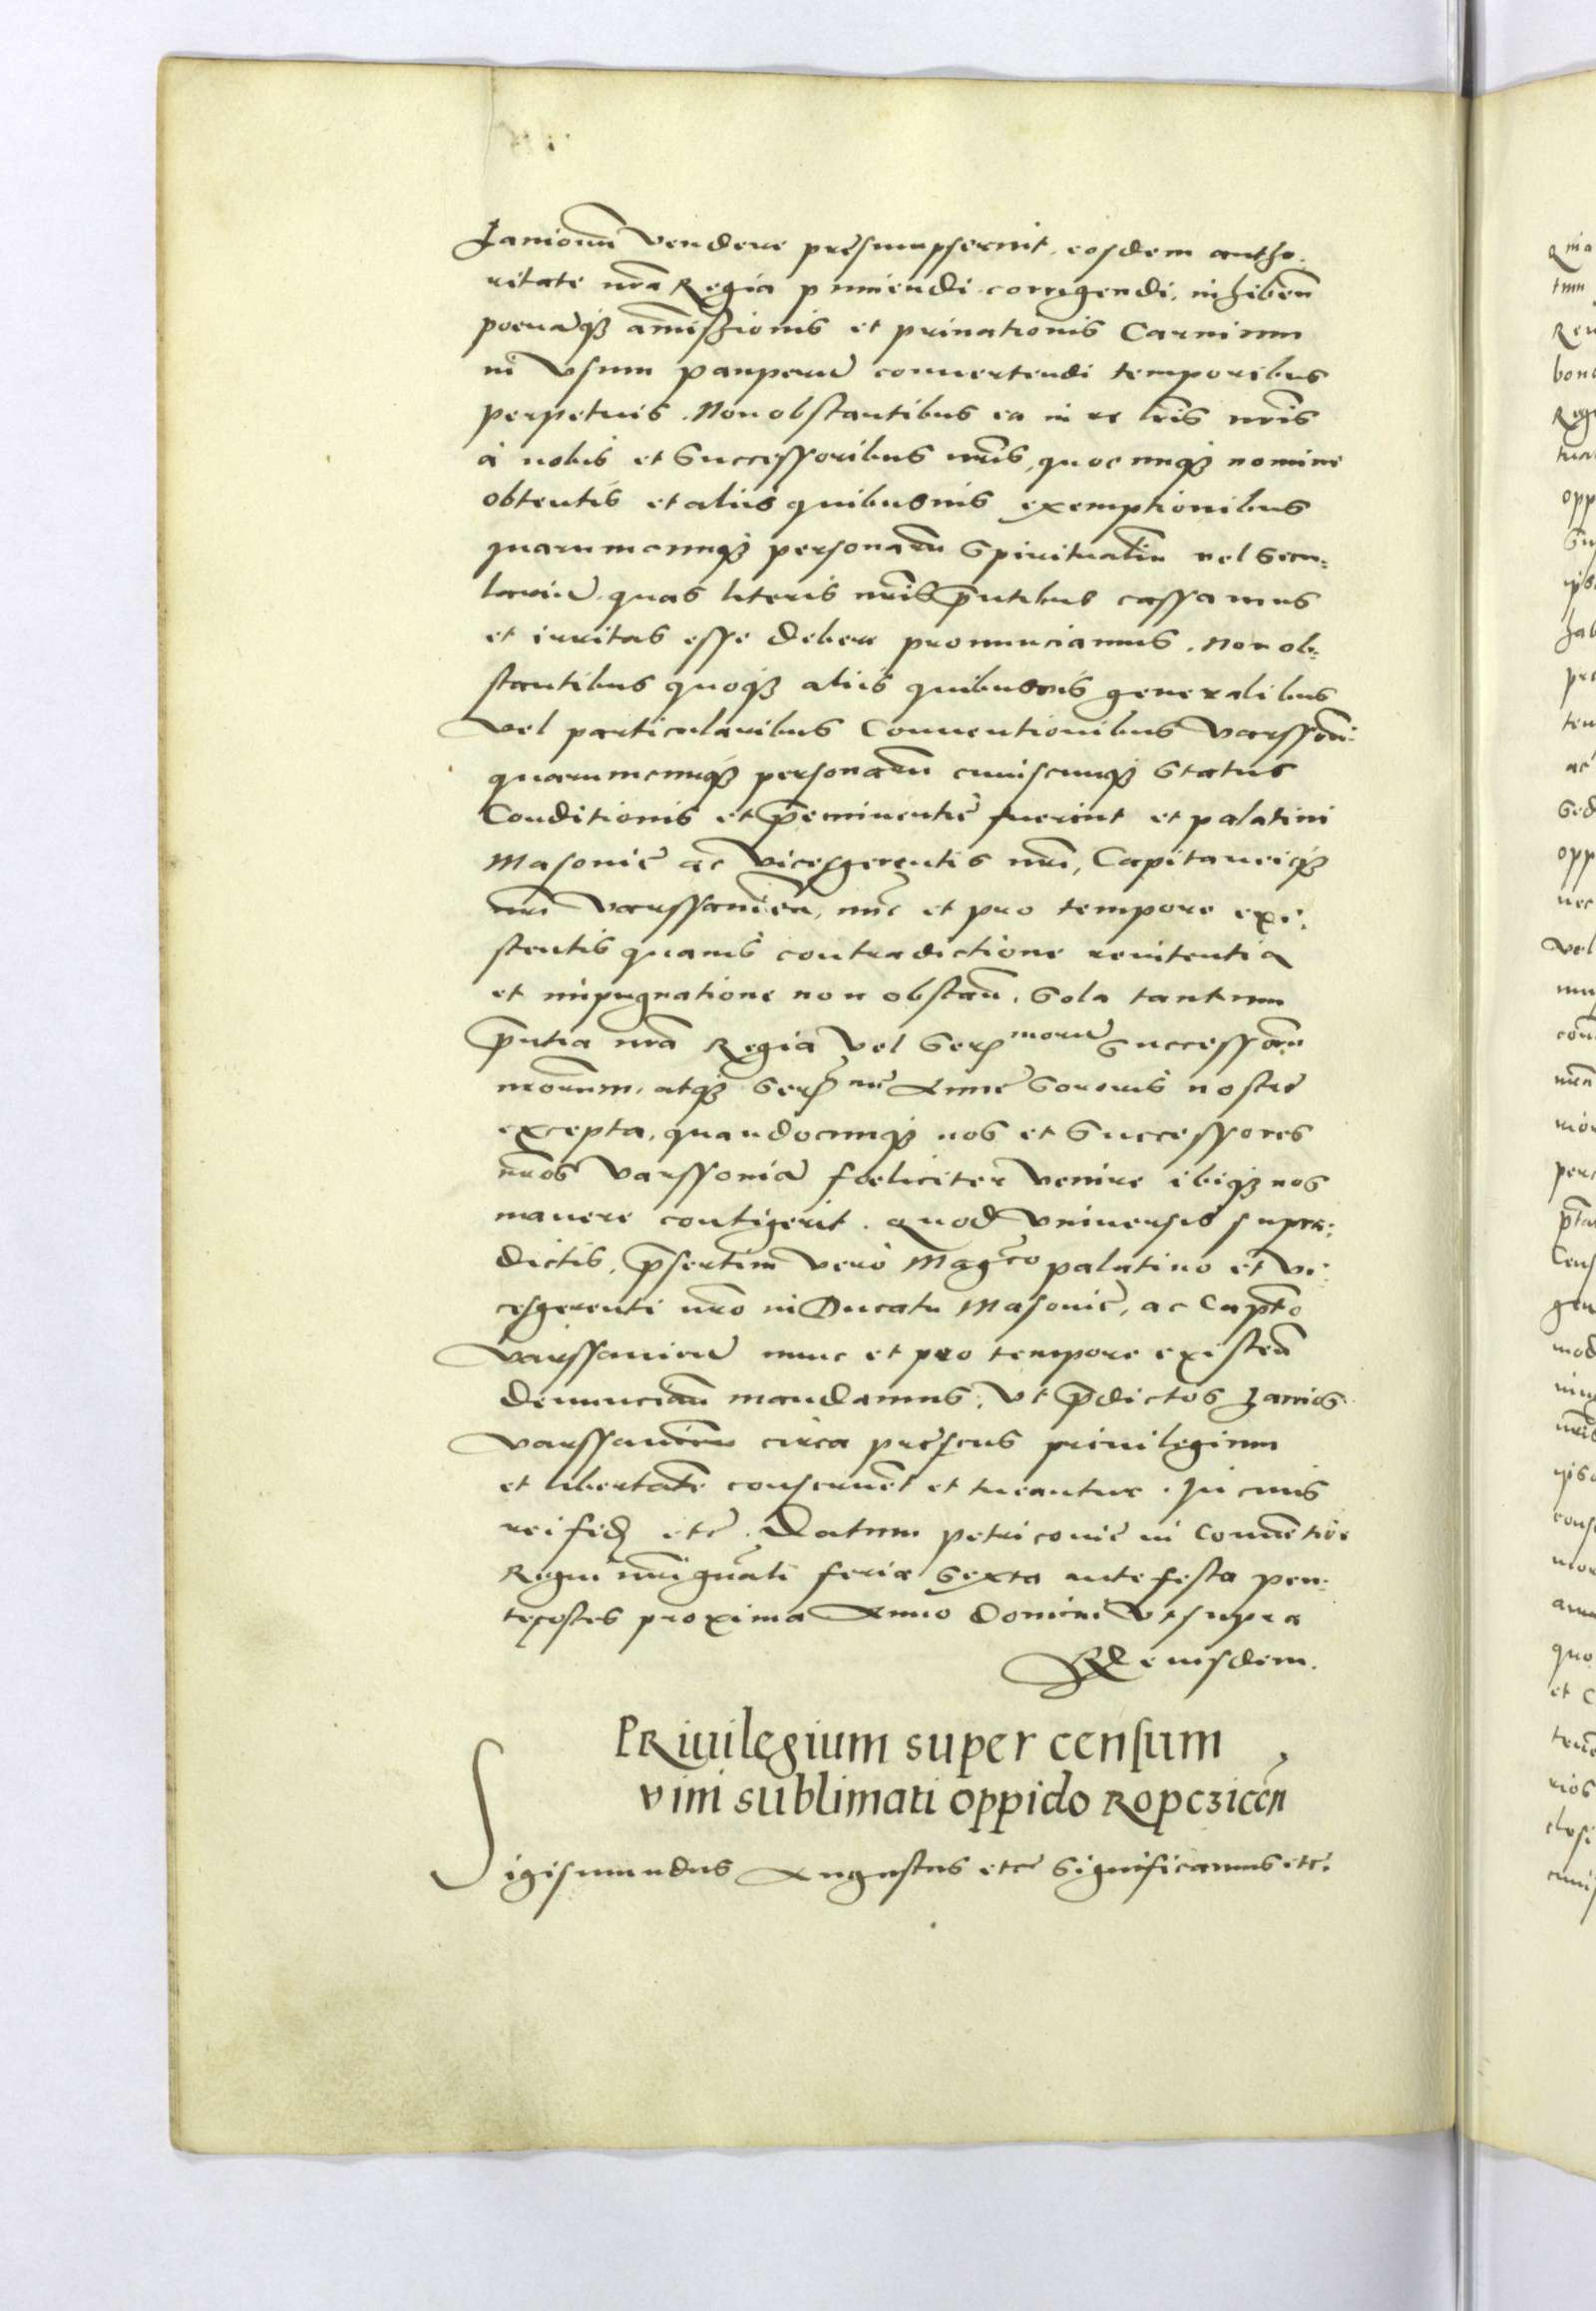 Lanionum vendere presumpserint, eosdem autho-
ritate nra Regia puniendi corrigendi, inhiben
poenaq3 amissionis et priuationis Carnium
in vsum pauperu conuertendi temporibus
perpetuis. Non obstantibus ea in re lris nris
à nobis et Successoribus nris, quocunq3 nomine
obtentis et aliis quibusuis exemptionibus
quarumcunq3 personaru Spiritualiu vel Secu-
lariu, quas literis nris pntibus cassamus
et irritas esse debere pronunciamus. Non ob-
stantibus quoq3 aliis quibusuis generalibus
vel particularibus Conuentionibus Varssouien
quarumcunq3 personaru cuiuscunq3 Status
Conditionis et preminentie fuerint et palatini
Masouie ac Vicesgerentis nri, Capitaneiq3
nri Varssauien, nunc et pro tempore exi-
stentis quauis contradictione renitentia
et impugnatione non obstan. Sola tantum
pntia nra Regia vel Ser morum Successoru
nrorum, atq3 Ser me Anne Sororis nostre
excepta, quandocunq3 nos et Successores
nros Varssouia foeliciter venire ibiq3 nos
manere contigerit. Quod vniuersis supra-
dictis, psertim vero Mag co palatino et vi-
cesgerenti nro in Ducatu Masouie, ac Captno
Varssauien nunc et pro tempore existen
denuncian mandamus, vt pdictos Lanios
Varssauien circa presens priuilegium
et libertate conseruent et tueantur. In cuius
rei fide etc. Datum petricouie in Conuentioe
Regni nri gnali feria Sexta ante festa pen-
tecostes proxima Anno Domini vt supra
Rel eiusdem.
PRiuilegium super censum
vini sublimati oppido Ropczicen
Sigismundus Augustus etc Significamus etc.